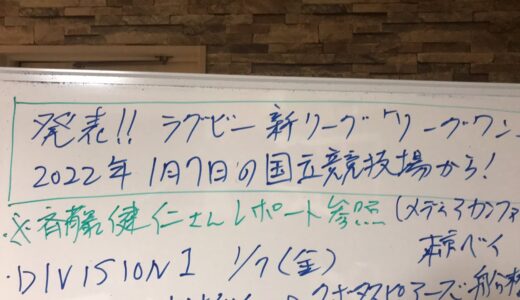 発表!! ラグビー新リーグ「リーグワン
2022年 1月7日の国立競技場から!
・※斉藤健仁さんレポート参照 (メディアカンファ
・DIVISION 1 1/7(金) 東京ベイ